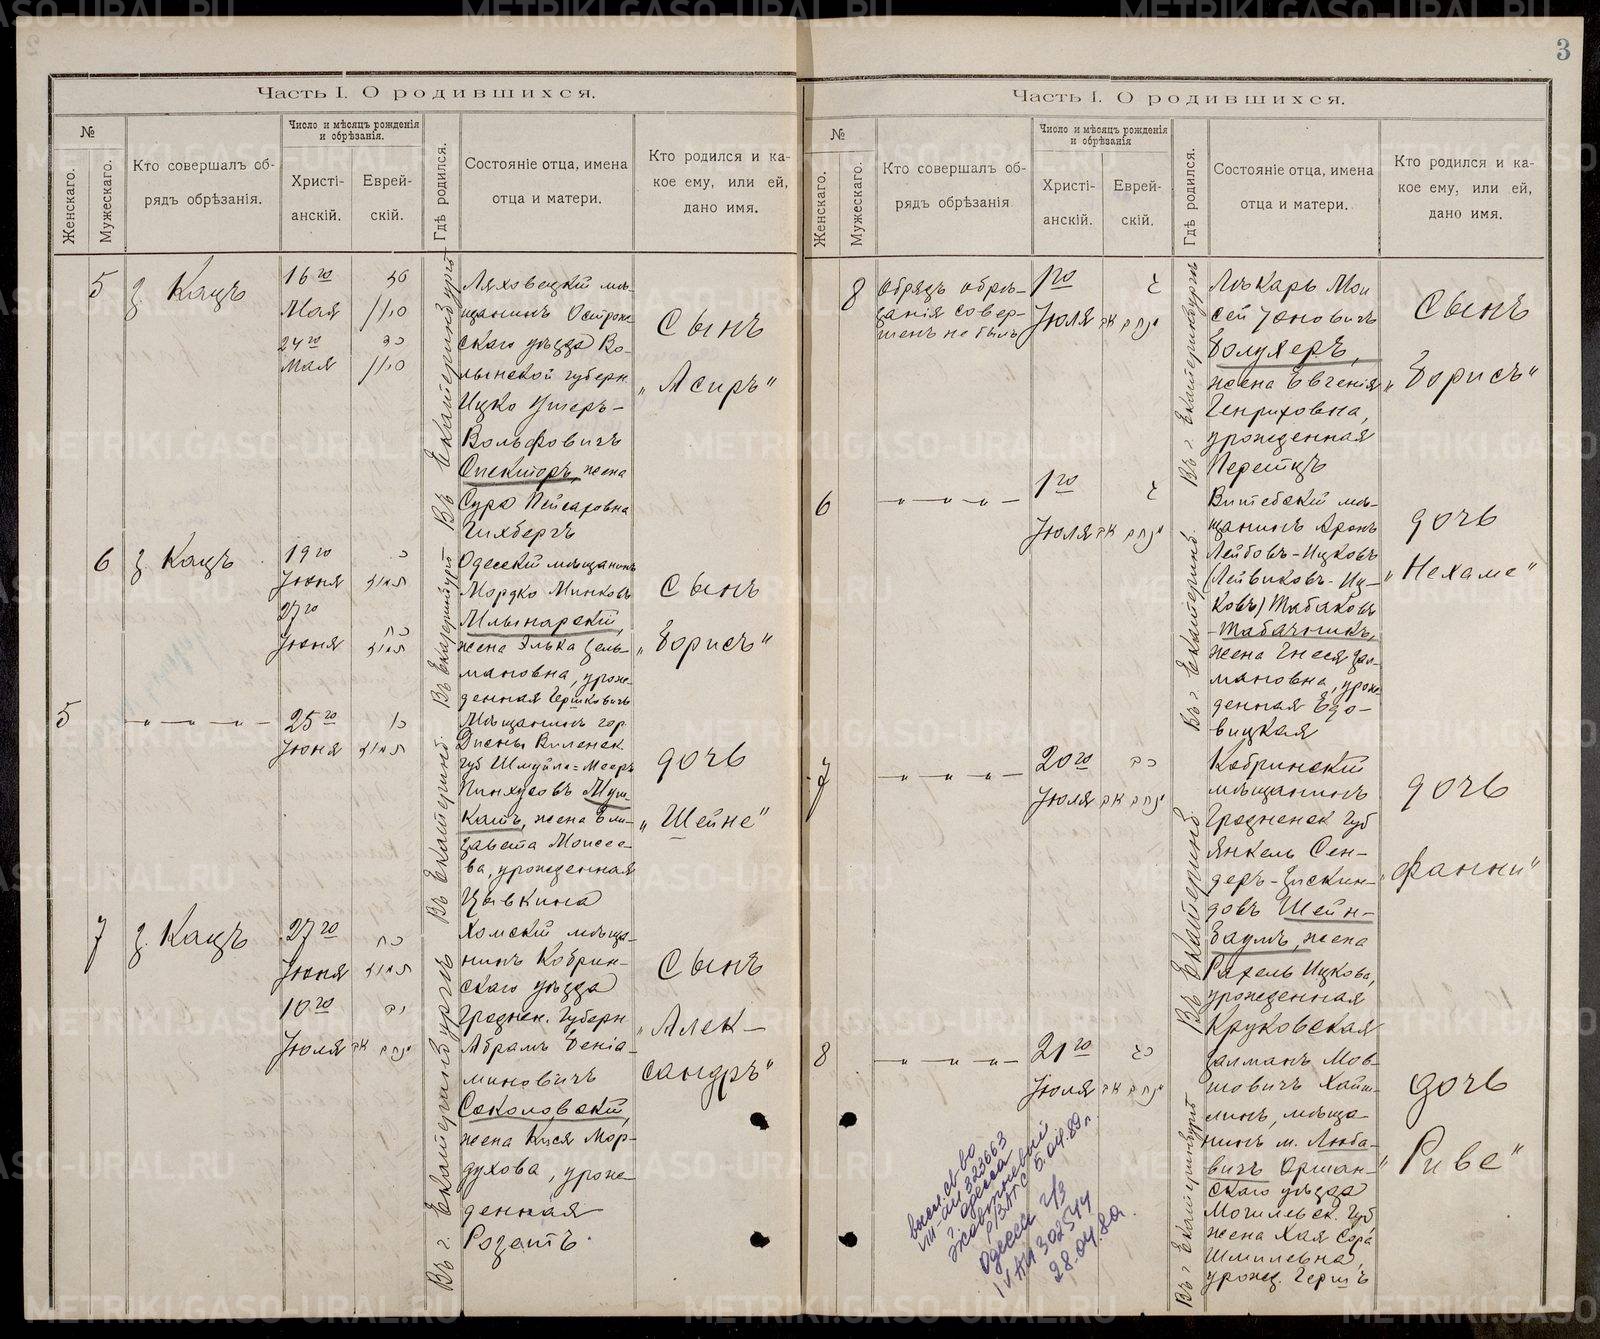 3
Часть I. О родившихся.
№
Женскаго.
Мужескаго.
Кто совершалъ об-
рядъ обрѣзанія.
Число и мѣсяцъ рожденія
и обрѣзанія.
Христі-
анскій.
Еврей-
скій.
Гдѣ родился.
Состояніе отца, имена
отца и матери.
Кто родился и ка-
кое ему, или ей,
дано имя.
5
З. Кацъ
16го
Мая
24го
Мая
Въ Екатеринбургѣ
Ляховецкій мѣ-
щанинъ Острож-
скаго уѣзда Во-
лынской губерн.
Ицко Ушеръ-
Вольфовичъ
Спекторъ, жена
Сура Пейсаховна
Гихбергъ
Сынъ
„Асиръ“
6
З. Кацъ
19го
Іюня
27го
Іюня
Въ Екатеринбургѣ
Одесскій мѣщанинъ
Мордко Минковъ
Млынарскій,
жена Элька Зель-
мановна, урож-
денная Гершковичъ
Сынъ
„Борисъ“
5
— „ — „ — „ —
25го
Іюня
Въ Екатеринб.
Мѣщанинъ гор.
Дисны Виленск.
губ Шмуйла-Мееръ
Пинхусовъ Муш-
катъ, жена Ели-
завета Моисее-
ва, урожденная
Цывкина
дочь
„Шейне“
7
З. Кацъ
27го
Іюня
10го
Іюля
Въ г. Екатеринбургѣ
Хомскій мѣща-
нинъ Кобрин-
скаго уѣзда
Гроднен. Губерн
Абрамъ Беніа-
миновичъ
Соколовскій,
жена Кися Мор-
духова, урож-
денная
Розетъ.
Сынъ
„Алек-
сандръ“
Часть I. О родившихся.
№
Женскаго.
Мужескаго.
Кто совершалъ об-
рядъ обрѣзанія
Число и мѣсяцъ рожденія
и обрѣзанія
Христі-
анскій.
Еврей-
скій.
Гдѣ родился.
Состояніе отца, имена
отца и матери.
Кто родился и ка-
кое ему, или ей,
дано имя.
8
Обрядъ обрѣ-
занія совер-
шенъ не былъ
1го
Іюля
Въ г. Екатеринбургѣ
Лѣкарь Мои
сей Іоновичъ
Болухеръ,
жена Евгенія
Генриховна,
урожденная
Перетцъ
Сынъ
„Борисъ“
6
— „ — „ — „ —
1го
Іюля
Въ г. Екатеринб.
Витебскій мѣ-
щанинъ Аронъ
Лейбовъ-Ицковъ
(Лейвиковъ-Иц-
ковъ) Табаковъ
-Табачникъ,
жена Гнеся Зал-
мановна, урож-
денная Едо-
вицкая
дочь
„Нехаме“
7
— „ — „ — „ —
20го
Іюля
Въ Екатеринб
Кобринскій
мѣщанинъ
Гродненск губ
Янкель Сен-
деръ-Зискин-
довъ Шейн-
баумъ, жена
Рахель Ицкова,
урожденная
Круковская
дочь
„Фанни“
8
— „ — „ — „ —
21го
Іюля
Въ г Екатеринбургѣ
Залманъ Мов-
шовичъ Хайт-
линъ, мѣща-
нинъ м. Люба-
вичъ Оршан-
скаго уѣзда
Могилевск. губ
жена Хая Сора
Шмилевна,
урожд. Герцъ
дочь
„Риве“
высл. св-во
VIII-АИ 323663
г Одесса
Жовтневый
р/ЗАГС 5.04.89 г.
Одесса г/з
IV АИ 302544
28.04.89.
METRIKI.GASO-URAL.RU